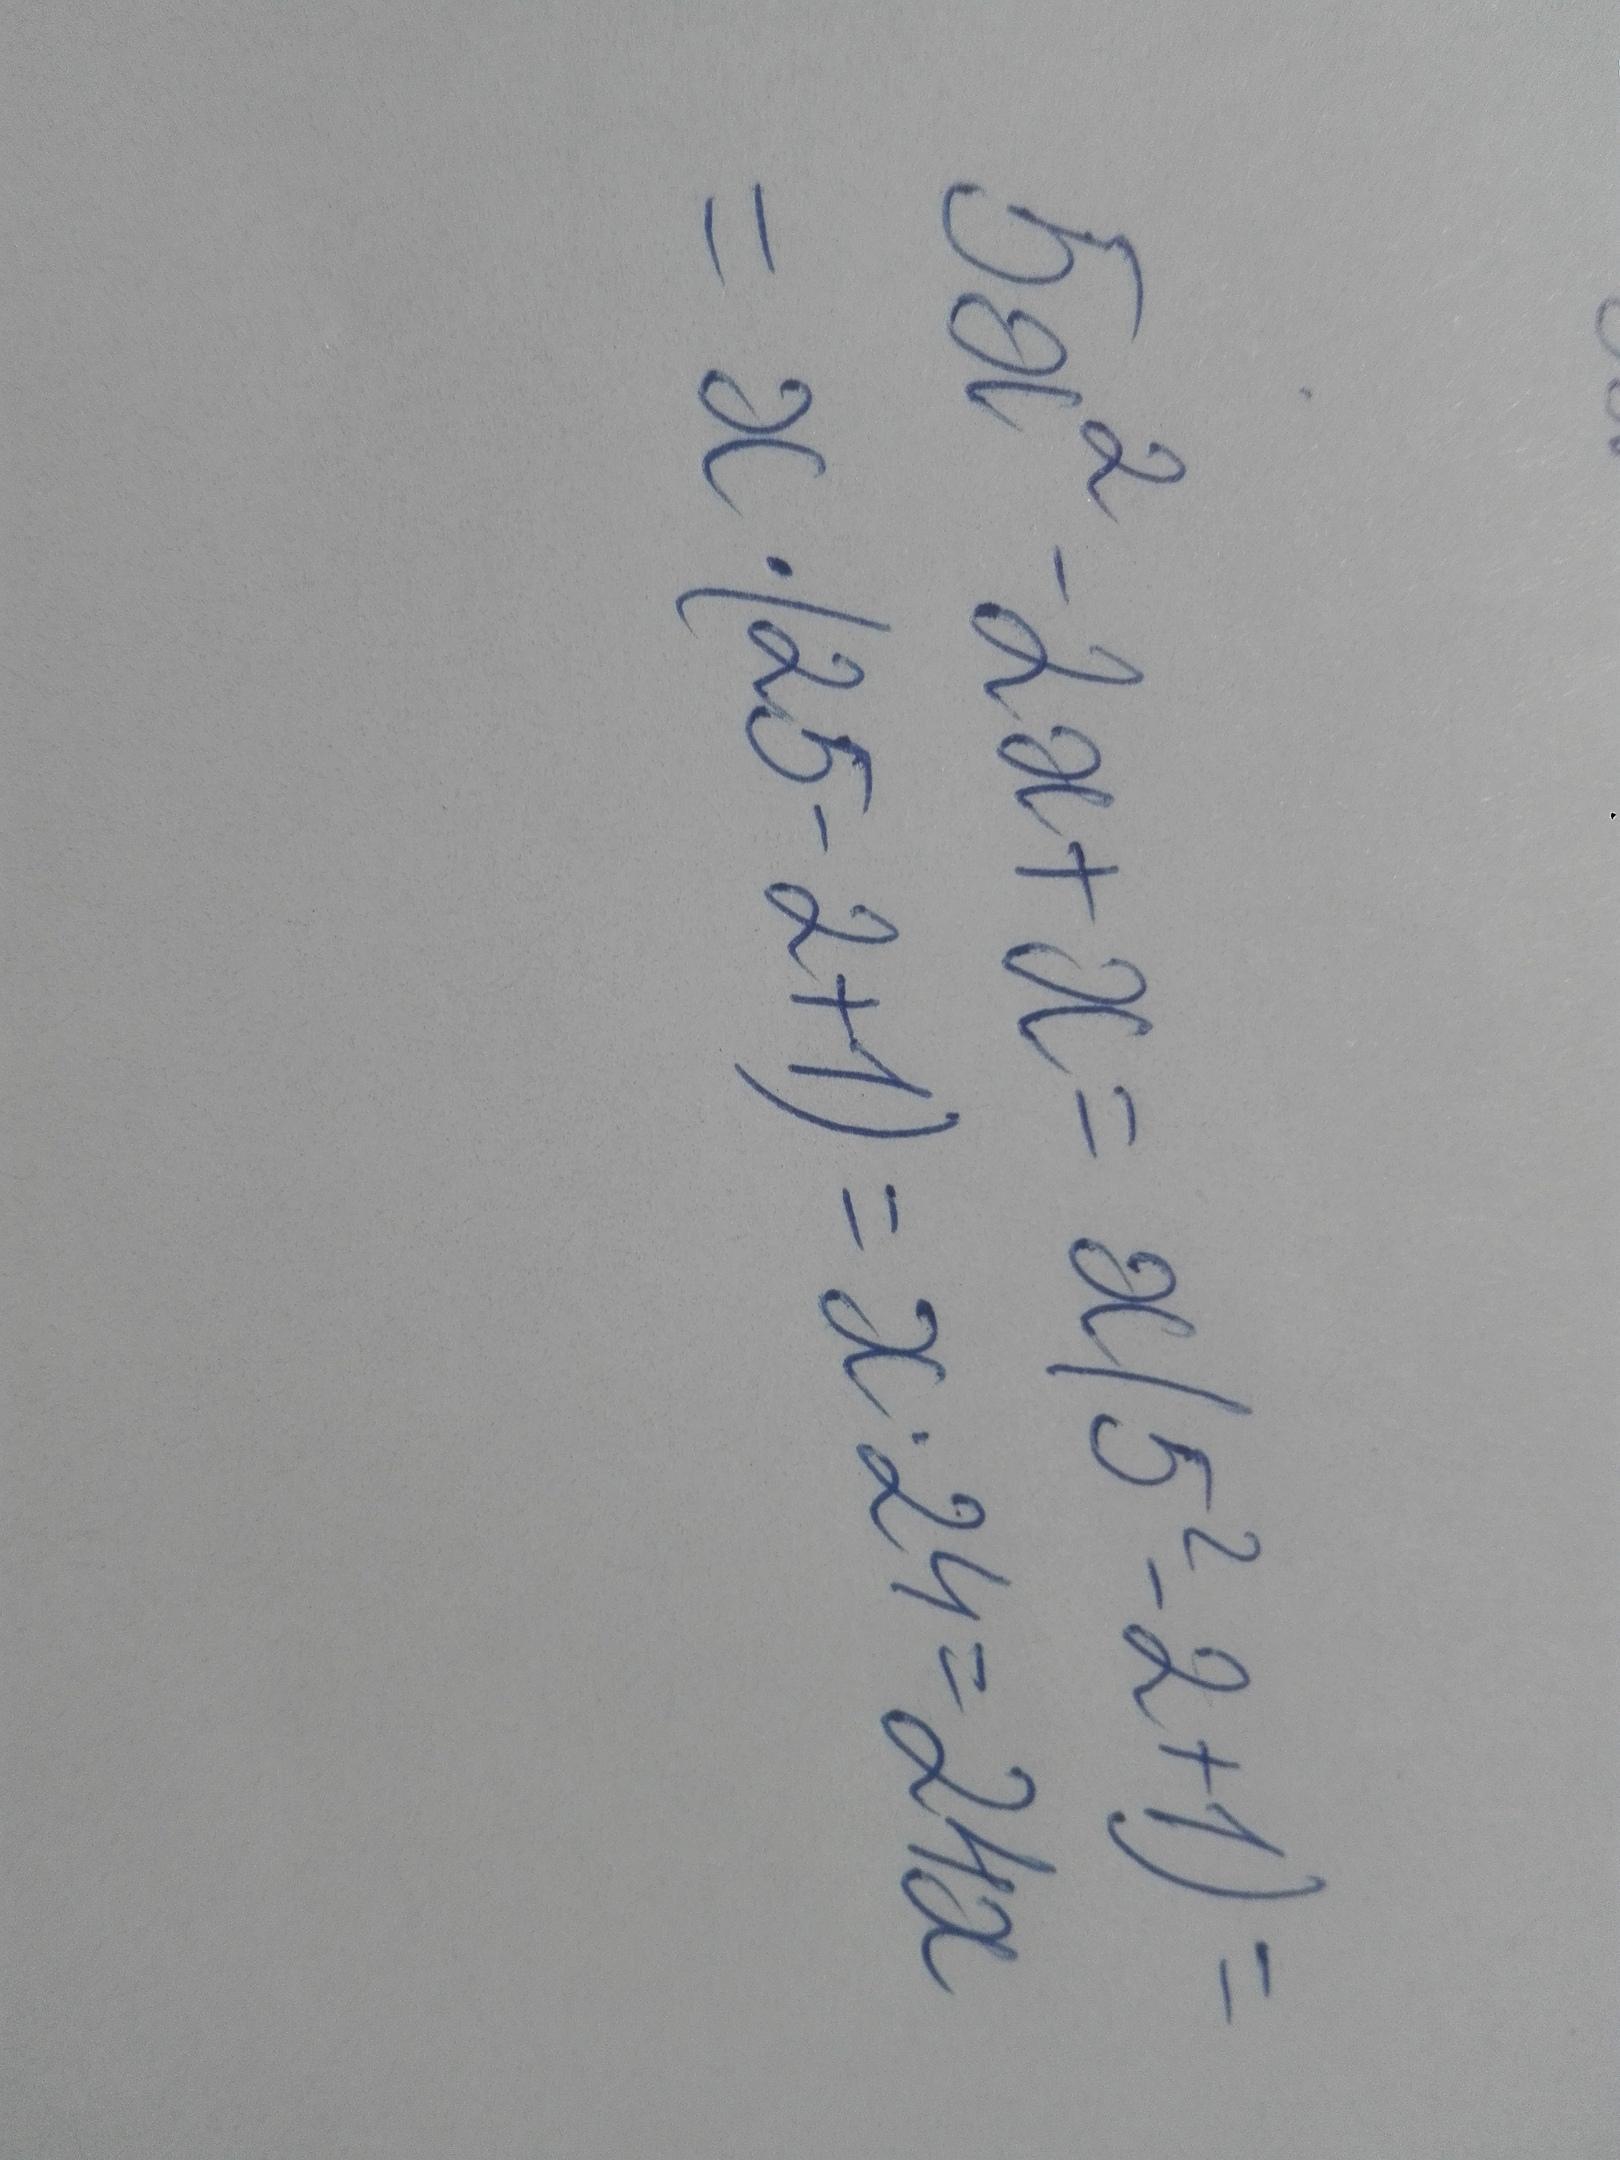 5x² - 2x + x = x(5² - 2 + 1) =
= x · (25 - 2 + 1) = x · 24 = 24x